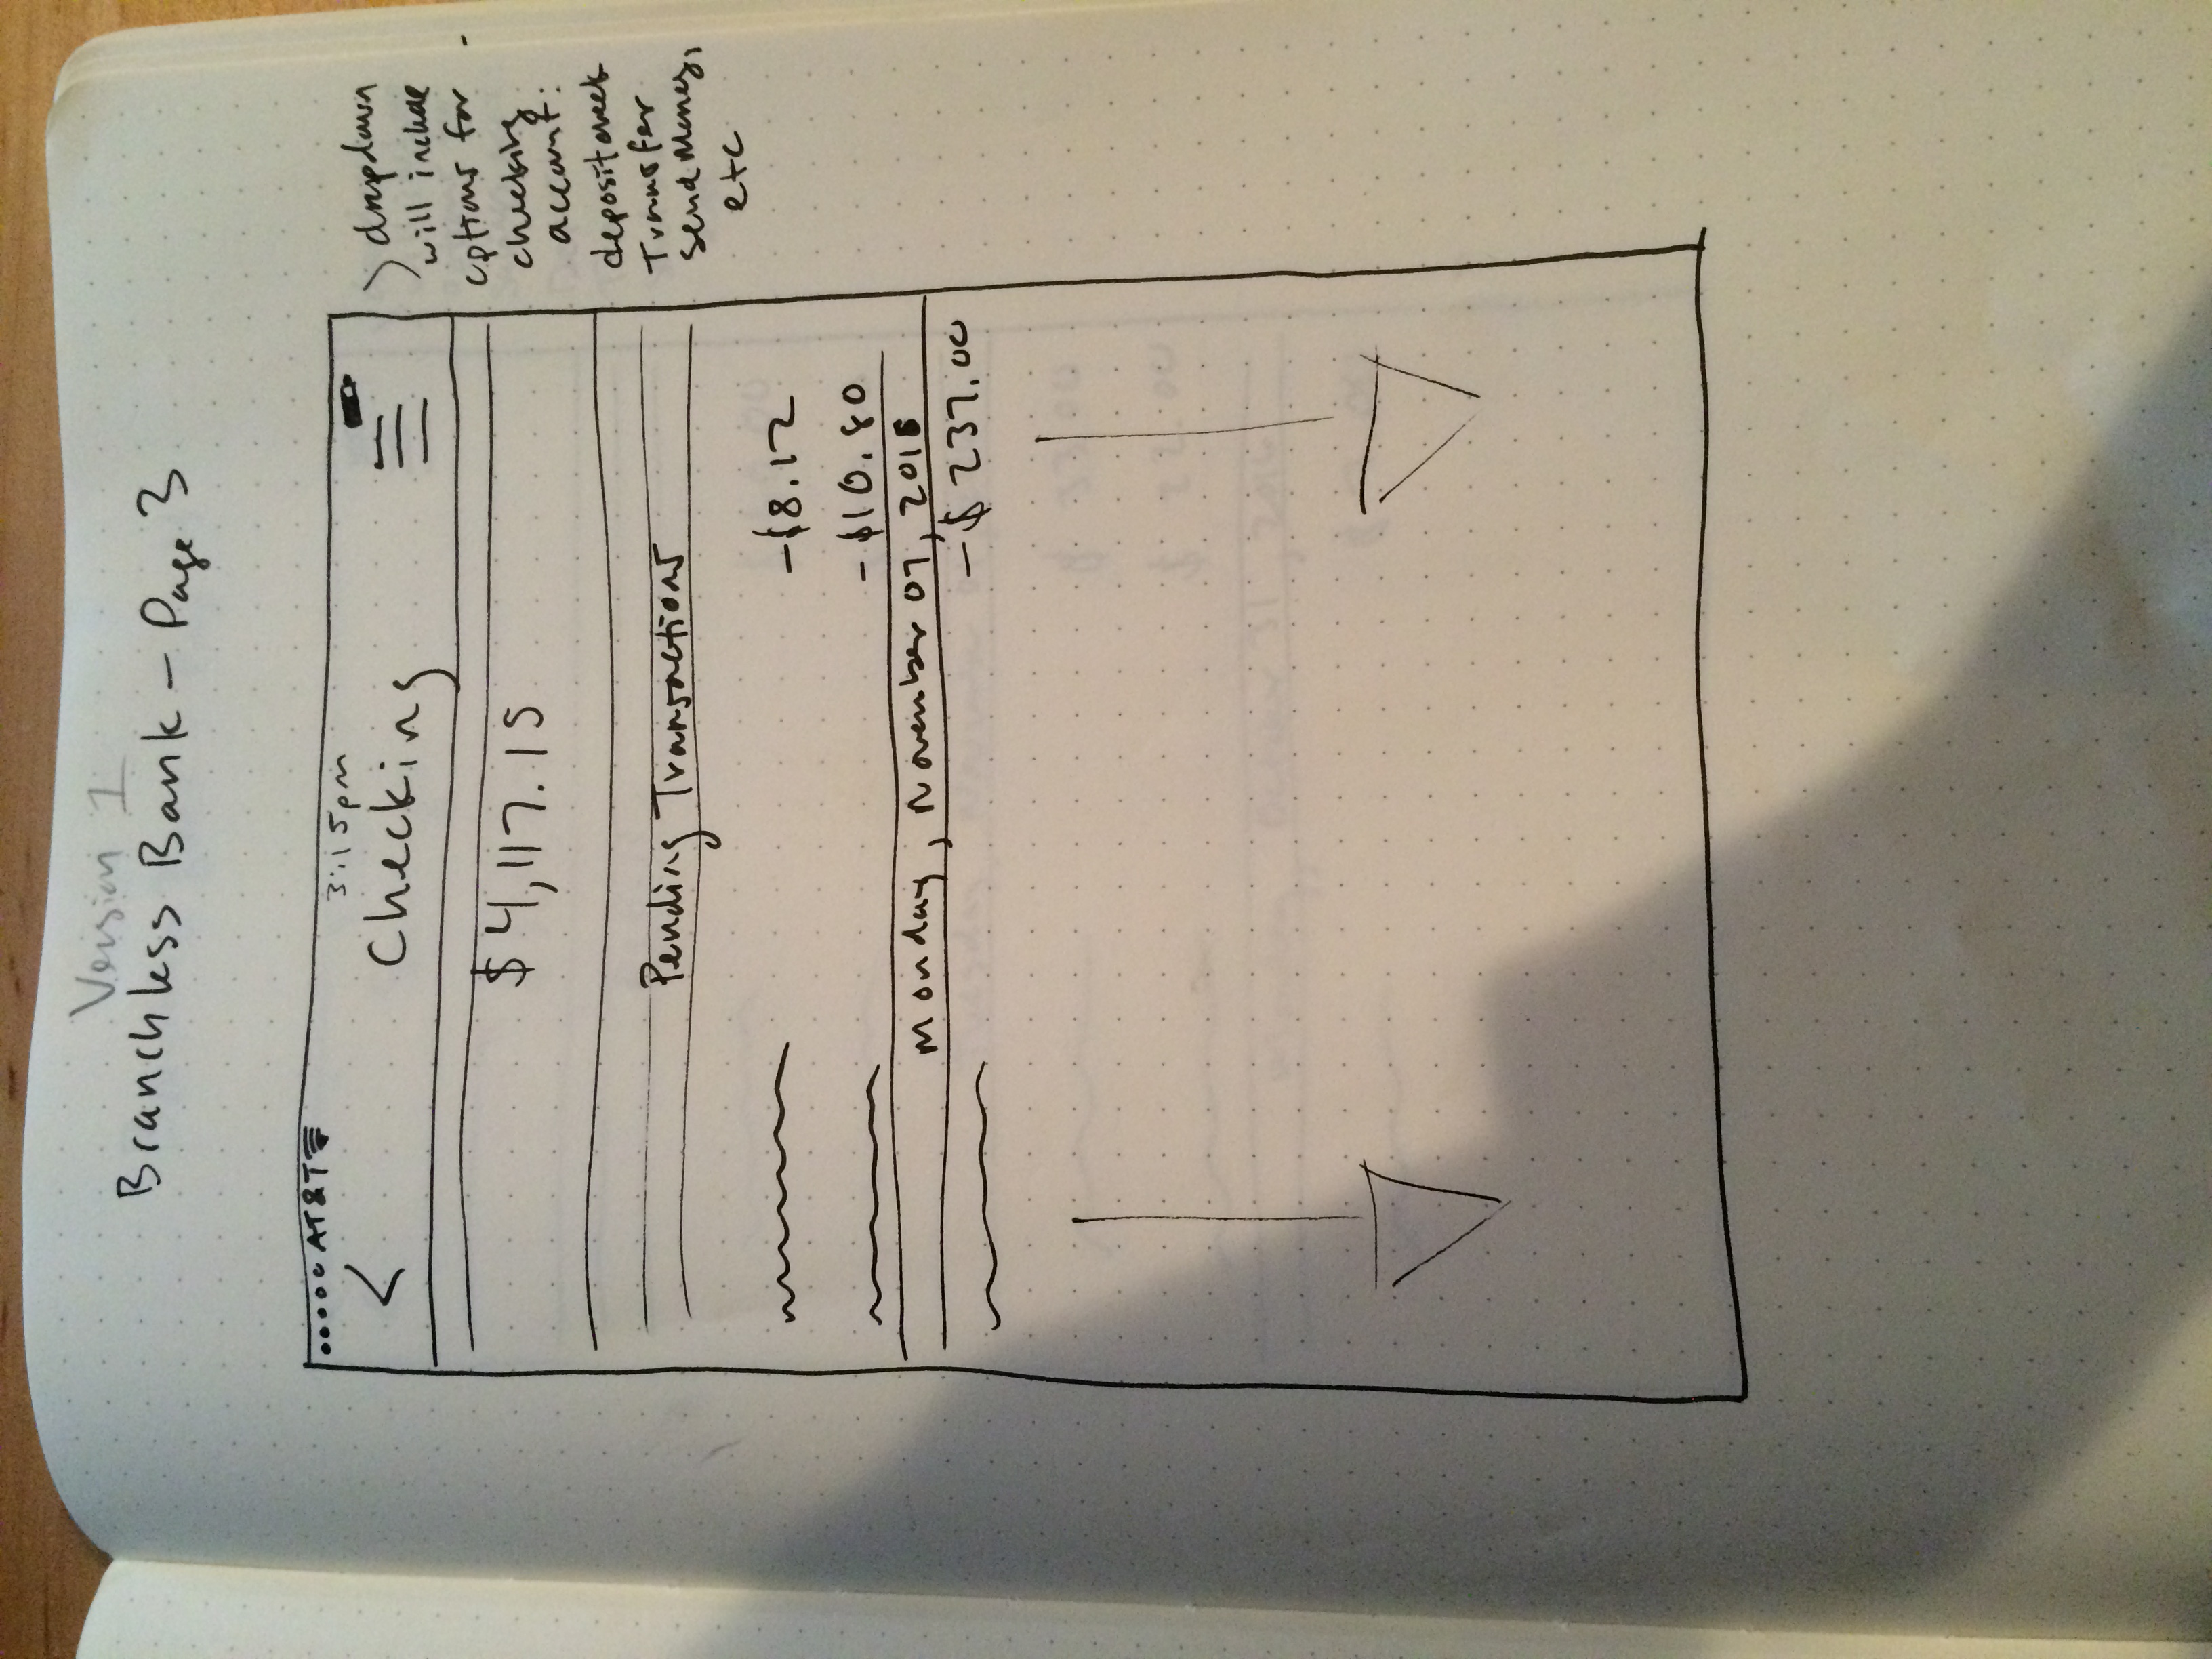 Version 1
Branchless Bank - Page 3
AT&T
3:15pm
Checking
$4,117.15
Pending Transactions
-$8.12
-$10.80
Monday, November 07, 2016
-$237.00
dropdown
will include
options for
checking
account:
deposit check
Transfer
Send Money,
etc